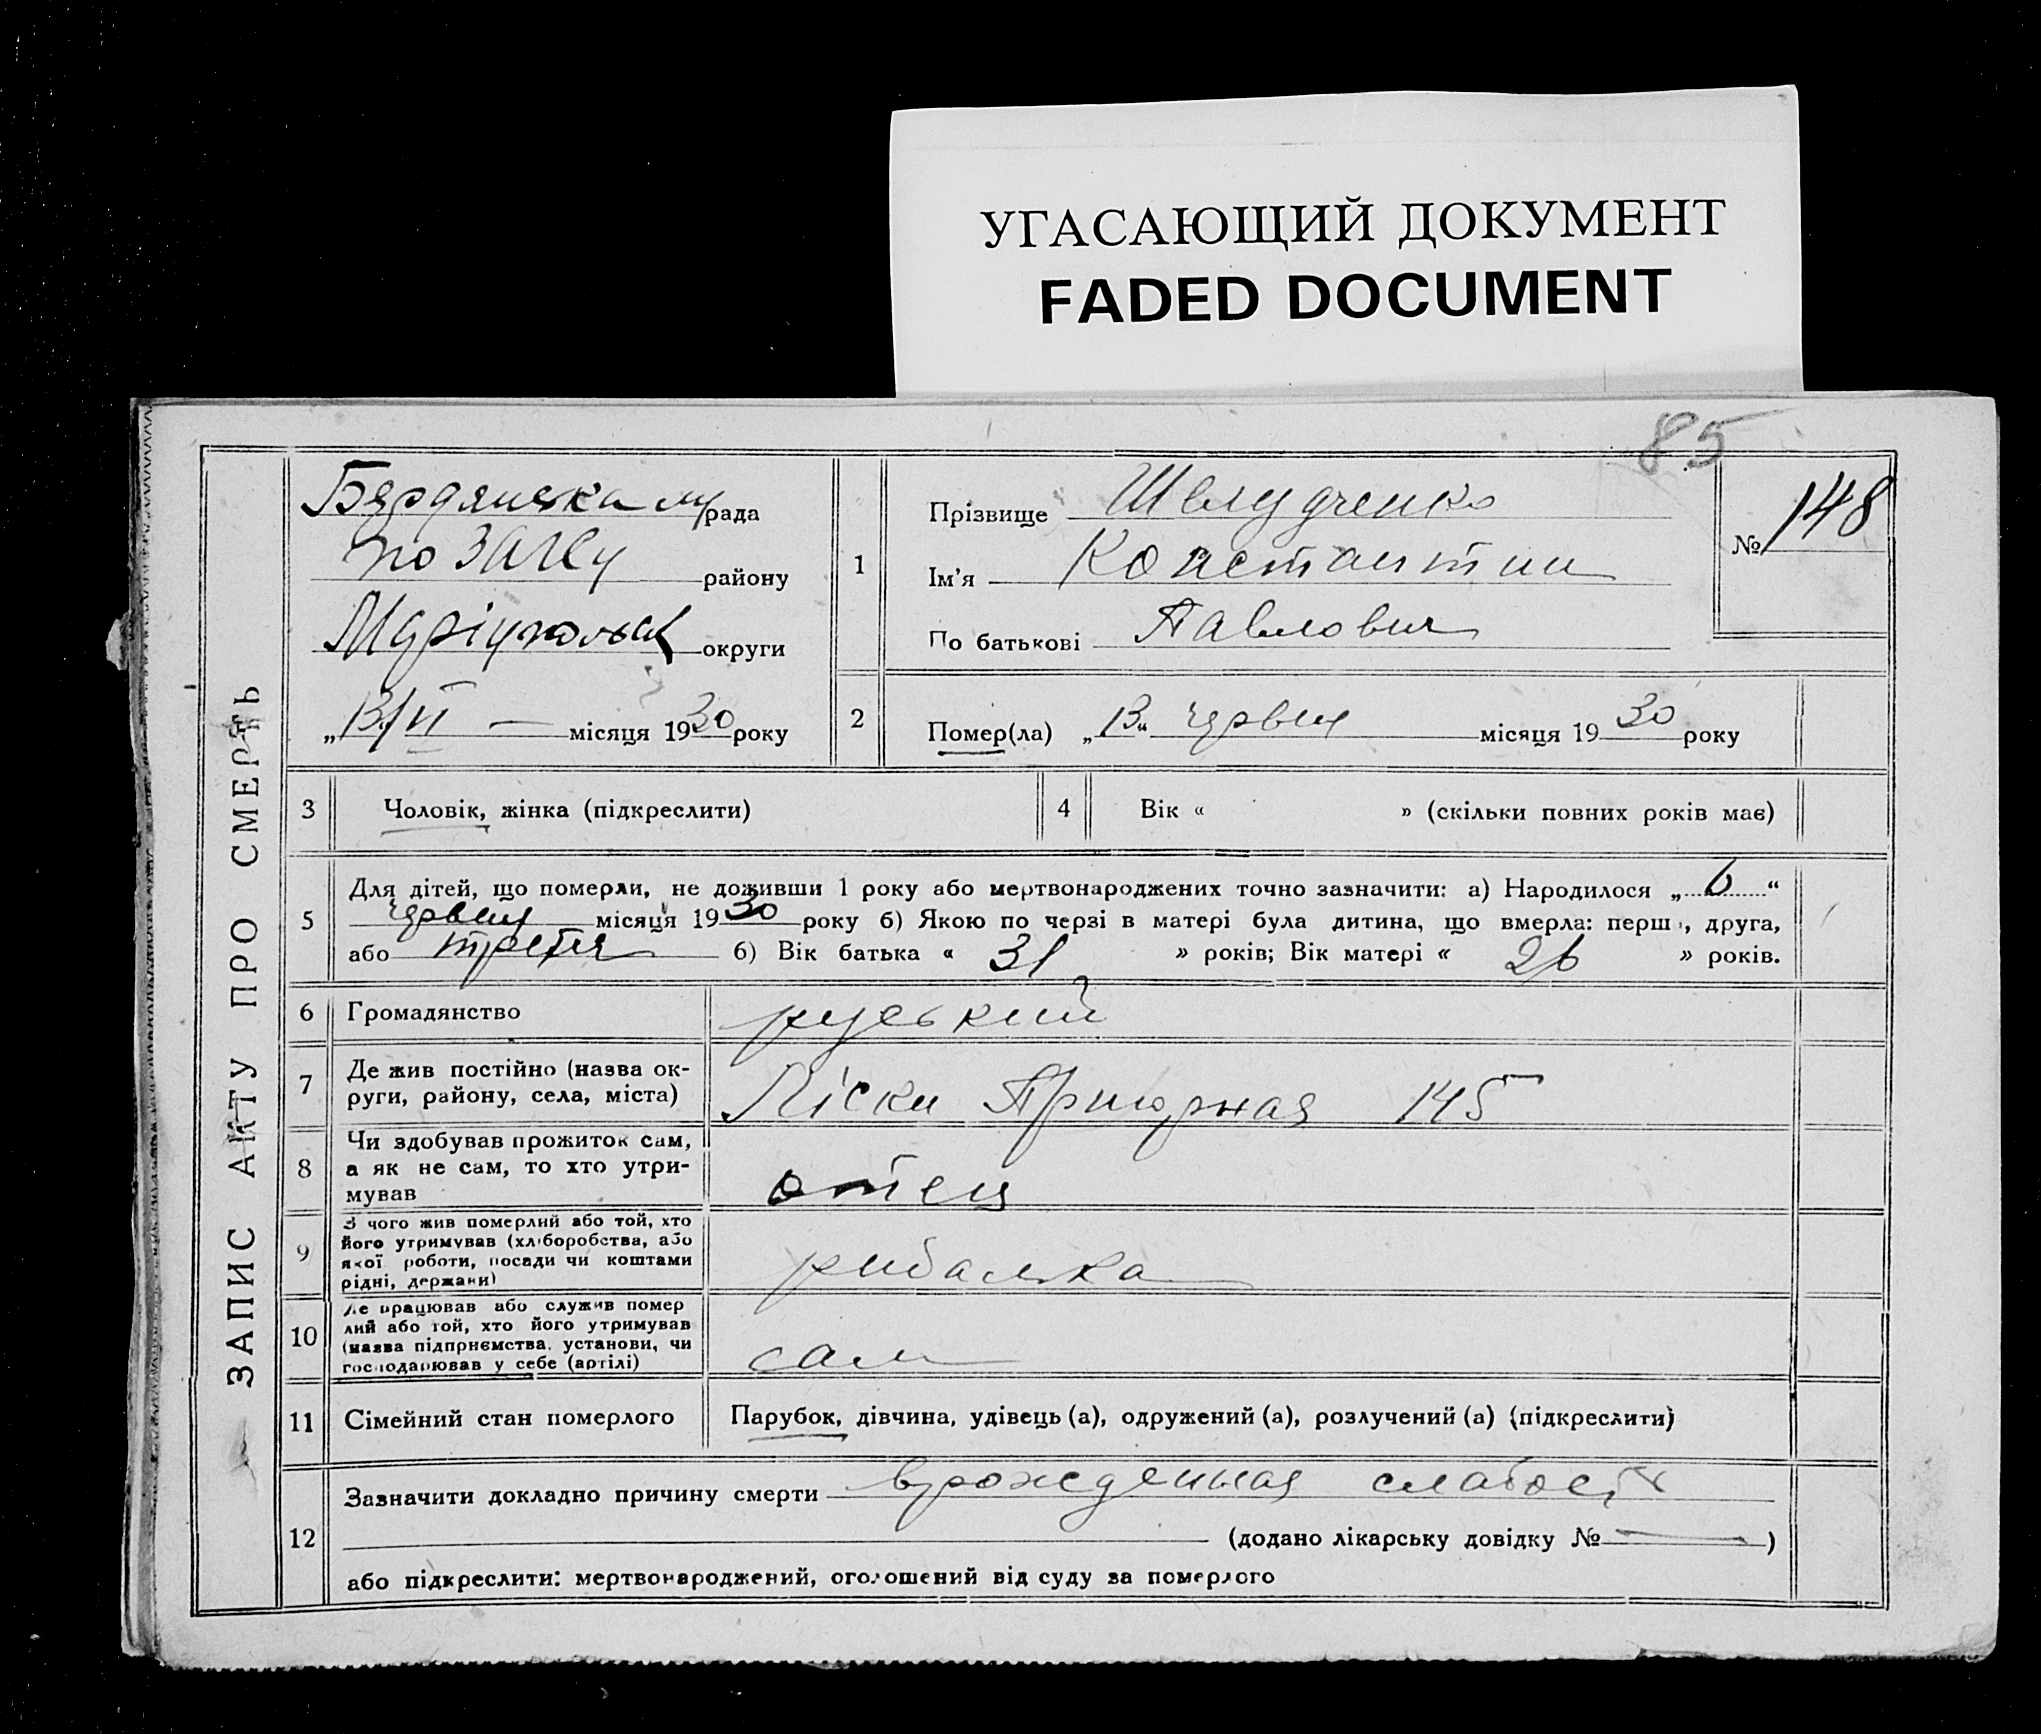 УГАСАЮЩИЙ ДОКУМЕНТ
FADED DOCUMENT
85
ЗАПИС АКТУ ПРО СМЕРТЬ
Бердянська м/рада
по ЗАГСу району
Маріупольськ округи
„13/VI — місяця 1930 року
1
Прізвище
Ім'я Константин
По батькові Павлович
№ 148
2
Помер(ла) „13“ червня місяця 1930 року
3 Чоловік, жінка (підкреслити)
4 Вік « » (скільки повних років має)
5 Для дітей, що померли, не доживши 1 року або мертвонароджених точно зазначити: а) Народилося „6“
червня місяця 1930 року б) Якою по черзі в матері була дитина, що вмерла: перша, друга,
або третя б) Вік батька « 31 » років; Вік матері « 26 » років.
6 Громадянство руський
7 Де жив постійно (назва ок-
руги, району, села, міста) Піски Пригорная 145
8 Чи здобував прожиток сам,
а як не сам, то хто утри-
мував отец
9 З чого жив померлий або той, хто
його утримував (хліборобства, або
якої роботи, посади чи коштами
рідні, держави) рибалка
10 Де працював або служив помер
лий або той, хто його утримував
(назва підприємства, установи, чи
господарював у себе (артілі) сам
11 Сімейний стан померлого Парубок, дівчина, удівець (а), одружений (а), розлучений (а) (підкреслити)
12 Зазначити докладно причину смерти врожденная слабость
(додано лікарську довідку № — )
або підкреслити: мертвонароджений, оголошений від суду за померлого